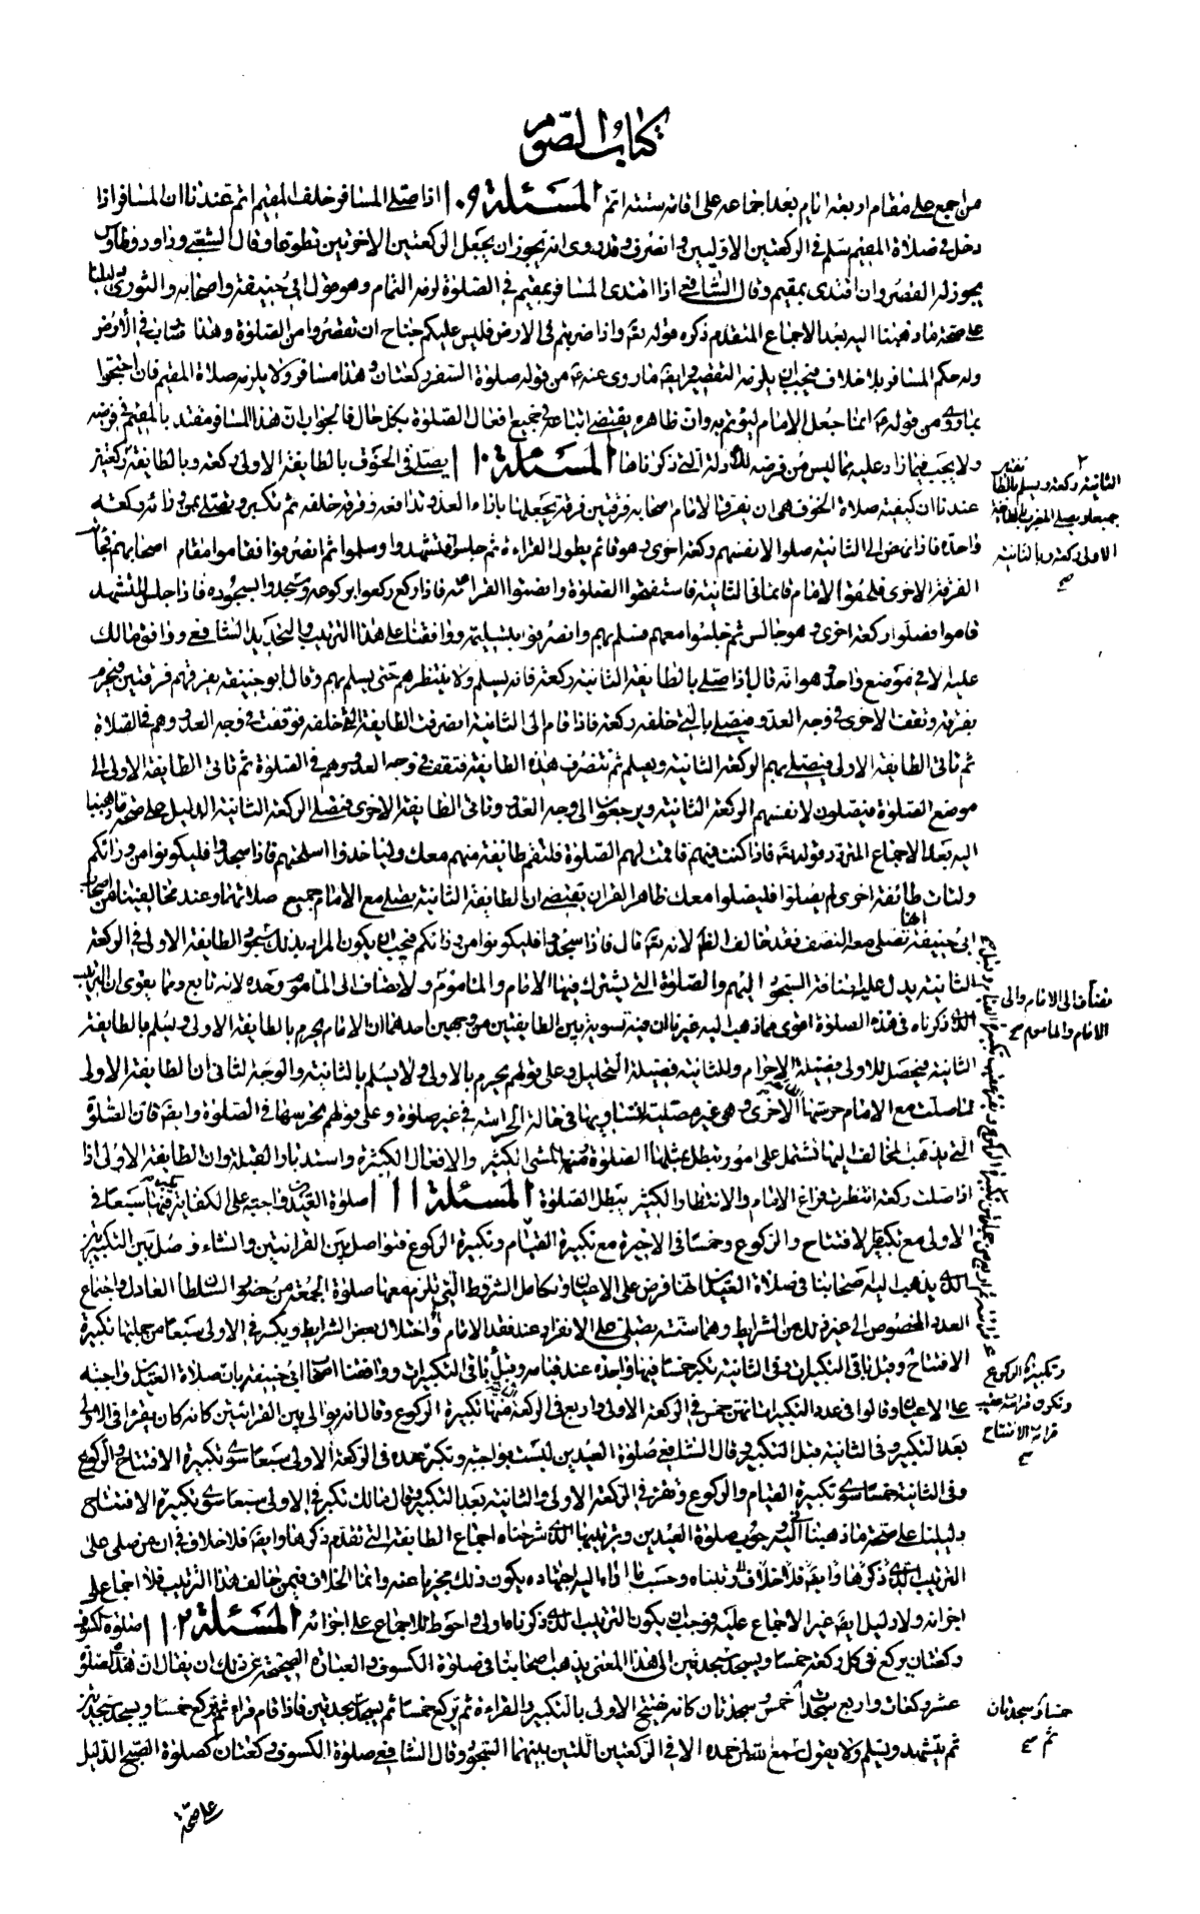 كتاب الصوم
من اجمع على مقام اربعة ايام بعد اجماعه على اقامة ستة اتم المسئلة ١٠٩ اذا صلى المسافر خلف المقيم اتم عندنا ان المسافر اذا
دخل في صلاة المقيم سلم في الركعتين الاوليين وانصرف وقد روى انه يجوز ان يجعل الركعتين الاخرتين تطوعا وقال الشعبي وداود وطاوس
يجوز له القصر وان اقتدى بمقيم وقال الشافعي اذا اقتدى المسافر بمقيم في الصلوة لزمه التمام وهو قول ابي حنيفة واصحابه والثوري دليلنا
على صحة ما ذهبنا اليه بعد الاجماع المتقدم ذكره قوله تع واذا ضربتم في الارض فليس عليكم جناح ان تقصروا من الصلوة وهذا ضارب في الارض
وله حكم المسافر بلا خلاف فيجب ان يلزمه التقصير وايضا ما روى عنه من قوله صلوة السفر ركعتان وهذا مسافر ولا يلزمه صلاة المقيم فان احتجوا
بما روى من قوله انما جعل الامام ليؤتم به وان ظاهره يقتضي اتباعه في جميع افعال الصلوة بكل حال فالجواب ان هذا المسافر مقتد بالمقيم في فرضه
ولا يجب فيما زاد عليه مما ليس من فرضه للادلة التي ذكرناها المسئلة ١١٠ يصلي في الخوف بالطايفة الاولى ركعة وبالطايفة ركعتين
الثانية ركعة ويسلم بالطا
جميعا ويصلي المغرب بالطايفة
الاولى ركعة وبالثانية
عندنا ان كيفية صلاة الخوف هي ان يفرق الامام اصحابه فرقتين فرقة يجعلها بازاء العدو تدافعه وفرقة خلفه ثم يكبر ويصلي بمن وراءه ركعة
واحدة فاذا نهض الى الثانية صلوا لانفسهم ركعة اخرى وهو قائم يطول القراءة ثم جلسوا فتشهدوا وسلموا ثم انصرفوا فقاموا مقام اصحابهم وجائت
الفرقة الاخرى فلحقوا الامام قائما في الثانية فاستفتحوا الصلوة وانصتوا القراءة فاذا ركع ركعوا بركوعه وسجدوا بسجوده فاذا جلس للتشهد
قاموا فصلوا ركعة اخرى وهو جالس ثم جلسوا معهم فسلم بهم وانصرفوا بتسليمه ووافقنا على هذا الترتيب والتحديد الشافعي ووافق مالك
عليه الا في موضع واحد وهو انه قال اذا صلى بالطايفة الثانية ركعة فانه يسلم ولا ينتظرهم حتى يسلم بهم وقال ابو حنيفة يفرقهم فرقتين فيحرم
بفرقة وتقف الاخرى في وجه العدو فيصلي بالتي خلفه ركعة فاذا قام الى الثانية انصرفت الطايفة التي خلفه فوقفت في وجه العدو وهم في الصلاة
ثم تاتي الطايفة الاولى فيصلي بهم الركعة الثانية ويسلم ثم تنصرف هذه الطايفة فتقف في وجه العدو وهم في الصلوة ثم تاتي الطايفة الاولى الى
موضع الصلوة فيصلون لانفسهم الركعة الثانية ويرجعون الى وجه العدو وتاتي الطايفة الاخرى فتصلي الركعة الثانية الدليل على صحة ما ذهبنا
اليه بعد الاجماع المتردد قوله تع فاذا كنت فيهم فاقمت لهم الصلوة فلتقم طايفة منهم معك وليأخذوا اسلحتهم فاذا سجدوا فليكونوا من ورائكم
ولتأت طائفة اخرى لم يصلوا فليصلوا معك ظاهر القران يقتضي ان الطايفة الثانية يصلي مع الامام جميع صلاتها وعند مخالفينا من اصحاب
ابي حنيفة تصلي معه النصف فقد خالف الظ لانه تع قال فاذا سجدوا فليكونوا من ورائكم فيجب ان يكون المراد بذلك سجود الطايفة الاولى في الركعة
الثانية يدل عليه اضافة السجود اليهم والصلوة التي يشترك فيها الامام والماموم ولا تضاف الى الماموم وحده لانه تابع ومما يقوى ان الترتيب
تضاف الى الامام والى
الامام والماموم
الذي ذكرناه في هذه الصلوة اقوى مما ذهب اليه غيرنا ان فيه تسوية بين الطايفتين من وجهين احدهما ان الامام يحرم بالطايفة الاولى ويسلم بالطايفة
الثانية فيحصل للاولى فضيلة الاحرام وللثانية فضيلة التحليل وعلى قولهم يحرم بالاولى ولا يسلم بالثانية والوجه الثاني ان الطايفة الاولى
لما صلت مع الامام حرستها الاخرى وهي غير مصلية فتساويها في حالة الحراسة في غير صلوة وعلى قولهم تحرسها في الصلوة وايضا فان الصلوة
التي يذهب المخالف اليها تشتمل على امور تبطل بمثلها الصلوة منها المشي الكثير والافعال الكثيرة واستدبار القبلة وان الطايفة الاولى اذا
اذا صلت ركعة انتظرت فراغ الامام والانتظار الكثير يبطل الصلوة المسئلة ١١١ صلوة العيدين واجبة على الكفاية سبعا في
الاولى مع تكبيرة الافتتاح والركوع وخمسا في الاخيرة مع تكبيرة القيام وتكبيرة الركوع فتواصل بين القرائتين والثناء وفصل بين التكبيرتين
الذي يذهب اليه اصحابنا في صلاة العيدين انها فرض على الاعيان وتكامل الشروط التي تلزم معها صلوة الجمعة من حضور السلطان العادل واجتماع
العدد المخصوص الى غير ذلك من الشرايط وهما سنة يصلى على الانفراد عند فقد الامام واختلال بعض الشرايط ويكبر في الاولى سبعا من جملتها تكبيرة
الافتتاح وقبل باقي التكبيرات وفي الثانية يكبر خمسا فيها واحدة عند قيامه وقبل باقي التكبيرات ووافقنا اصحاب ابي حنيفة بان صلاة العيدين واجبة
وتكبيرة الركوع
وتكون قرائة عقيب
قرائة الافتتاح
على الاعيان وقالوا في عدد التكبير انها تمن خمس في الركعة الاولى واربع في الركعة منها تكبيرة الركوع وقال انه يوالي بين القرائتين كانه كان يقرا في الاولى
بعد التكبير وفي الثانية قبل التكبير وقال الشافعي صلوة العيدين ليست بواجبة وتكبر عنده في الركعة الاولى سبعا سوى تكبيرة الافتتاح والركوع
وفي الثانية خمسا سوى تكبيرة القيام والركوع وتقرء في الركعة الاولى والثانية بعد التكبير وقال مالك تكبر في الاولى سبعا سوى تكبيرة الافتتاح
دليلنا على صحة ما ذهبنا اليه في وجوب صلوة العيدين وترتيبها الذي شرحناه اجماع الطايفة التي تقدم ذكرها وايضا فلا خلاف في ان من صلى على
الترتيب الذي ذكرناه وايضا فلا خلاف ورتبناه وحسب ما اداه اليه اجتهاده يكون ذلك مجزيا عنه وانما الخلاف فيمن خالف هذا الترتيب فلا اجماع على
اجزائه ولا دليل ايضا غير الاجماع عليه فوجب ان يكون الترتيب الذي ذكرناه اولى واحوط للاجماع على اجزائه المسئلة ١١٢ صلوة الكسوف
ركعتان يركع في كل ركعة خمسا ويسجد سجدتين الى هذا المعنى يذهب اصحابنا في صلوة الكسوف والعبارة الصحيحة عن ذلك ان يقال ان هذه الصلوة
عشر ركعات واربع سجدات خمس وسجدتان كانه يفتتح الاولى بالتكبير والقراءة ثم يركع خمسا ثم يسجد سجدتين فاذا قام قراء ثم يركع خمسا ويسجد سجدتين
خمسا وسجدتان
ثم
ثم يتشهد ويسلم ولا يقول سمع الله لمن حمده الا في الركعتين اللتين يليهما السجود وقال الشافعي صلوة الكسوف ركعتان كصلوة الصبح الدليل
على صحة